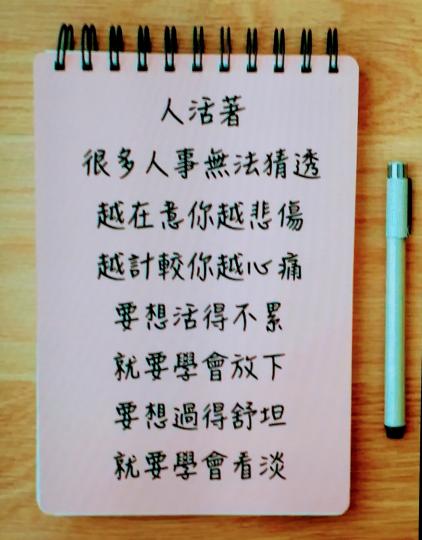 人活著
很多人事無法猜透
越在意你越悲傷
越計較你越心痛
要想活得不累
就要學會放下
要想過得舒坦
就要學會看淡